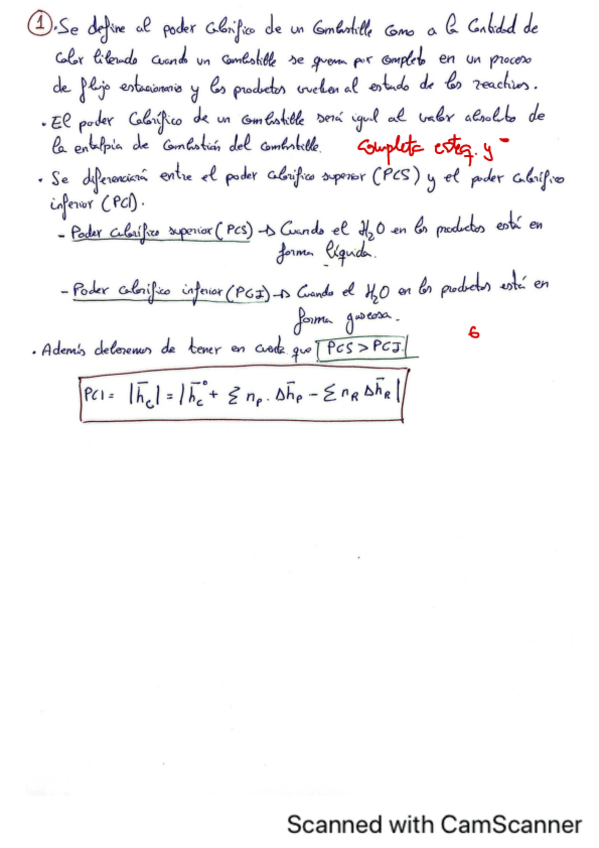 1 · Se define al poder calorífico de un combustible como a la cantidad de
calor liberado cuando un combustible se quema por completo en un proceso
de flujo estacionario y los productos vuelven al estado de los reactivos.
· El poder calorífico de un combustible será igual al valor absoluto de
la entalpía de combustión del combustible. Completa esteq. y
· Se diferenciará entre el poder calorífico superior (PCS) y el poder calorífico
inferior (PCI).
- Poder calorífico superior (PCS) → Cuando el H₂O en los productos está en
forma líquida.
- Poder calorífico inferior (PCI) → Cuando el H₂O en los productos está en
forma gaseosa.
6
· Además deberemos de tener en cuenta que PCS > PCI.
PCI = |h̄c| = |h̄c° + Σ nP · Δh̄P - Σ nR Δh̄R|
Scanned with CamScanner